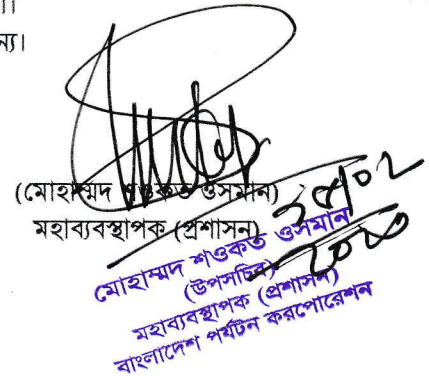 ন্য।
(মোহাম্মদ শওকত ওসমান)
মহাব্যবস্থাপক (প্রশাসন)
মোহাম্মদ শওকত ওসমান
(উপসচিব)
মহাব্যবস্থাপক (প্রশাসন)
বাংলাদেশ পর্যটন করপোরেশন